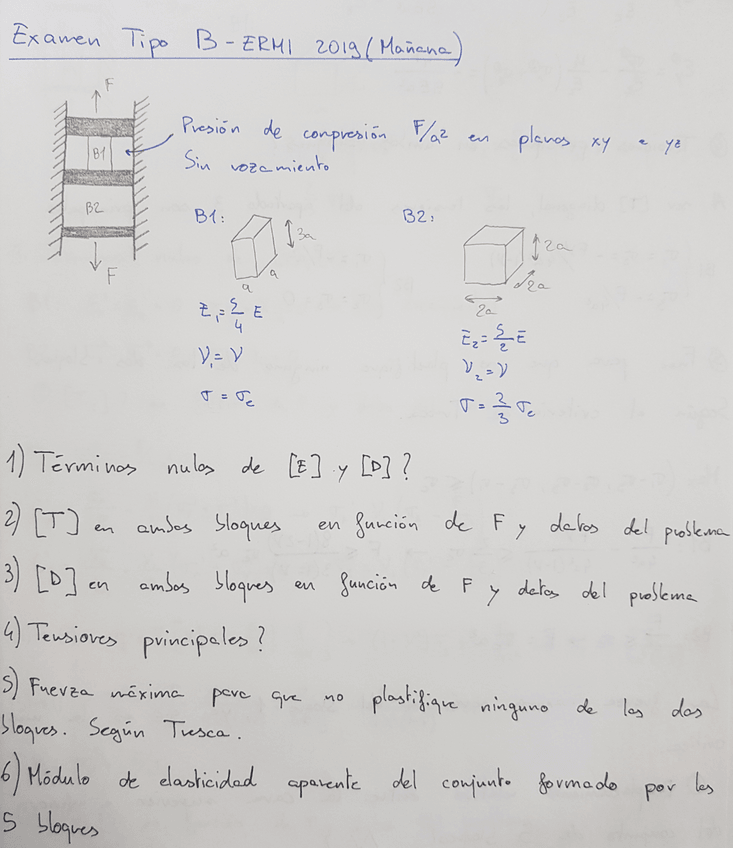 Examen Tipo B - ERMI 2019 (Mañana)
F
Presión de compresión F/a² en planos xy e yz
Sin rozamiento
B1
B2
F
B1:
3a
a
a
E₁ = 5/4 E
ν₁ = ν
σ = σe
B2:
2a
2a
2a
E₂ = 5/2 E
ν₂ = ν
σ = 2/3 σe
1) Términos nulos de [E] y [D]?
2) [T] en ambos bloques en función de F y datos del problema
3) [D] en ambos bloques en función de F y datos del problema
4) Tensiones principales?
5) Fuerza máxima para que no plastifique ninguno de los dos
bloques. Según Tresca.
6) Módulo de elasticidad aparente del conjunto formado por los
5 bloques